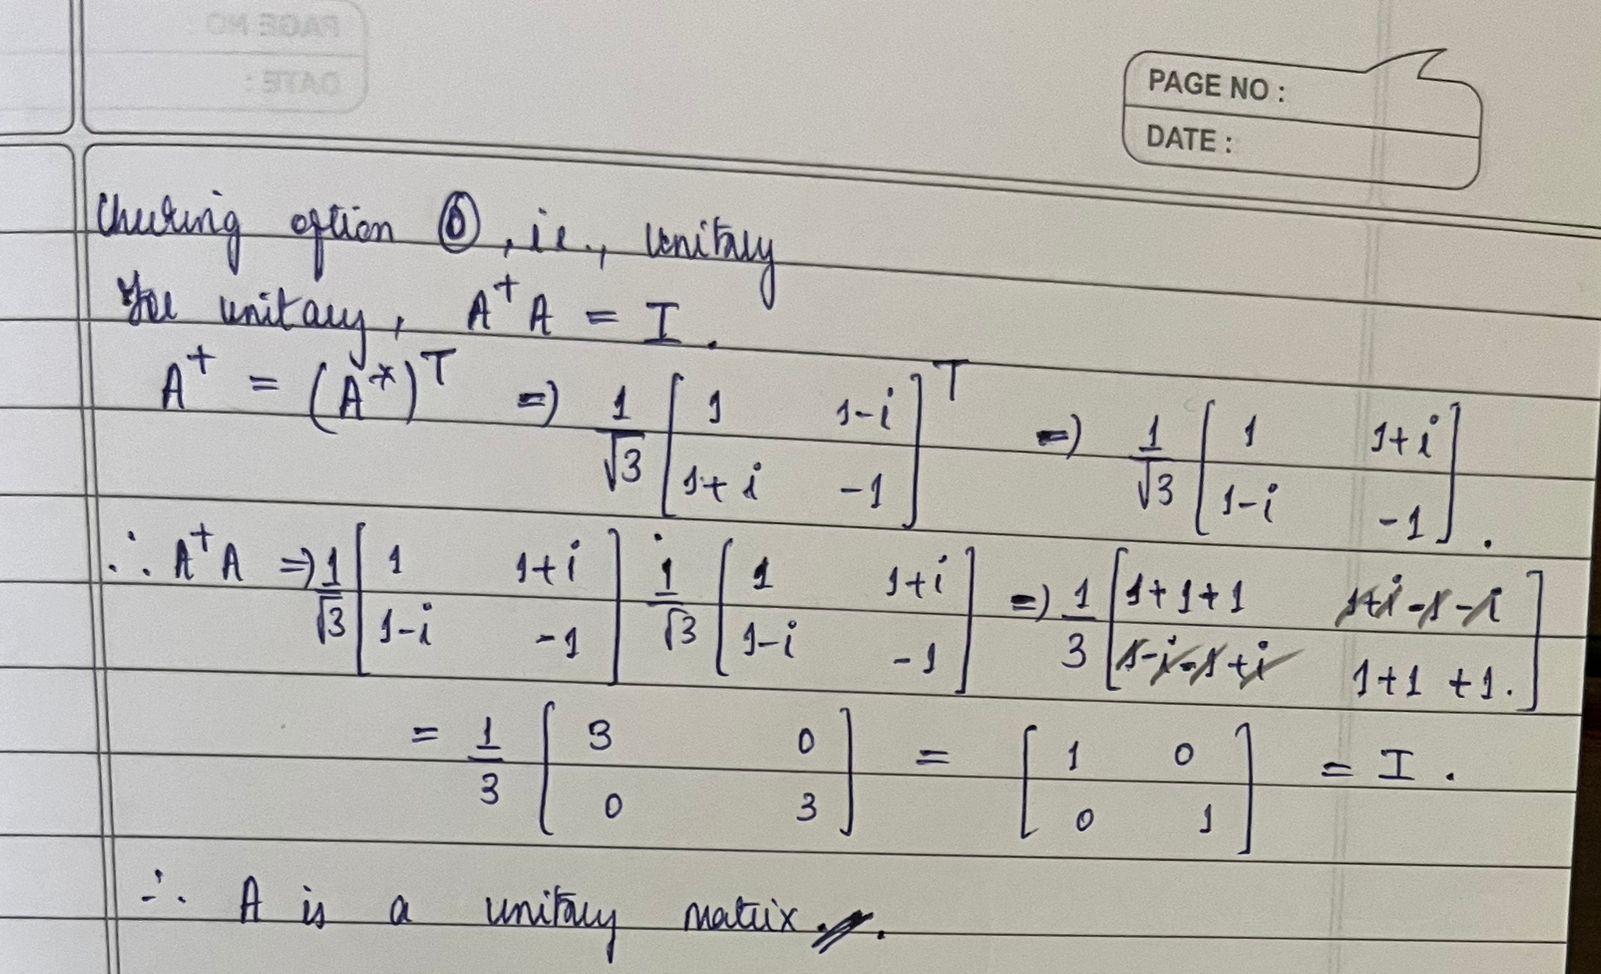 PAGE NO :
DATE :
Checking option ⑥, i.e., unitary
For unitary, A⁺A = I.
A⁺ = (A*)ᵀ ⇒ 1/√3 [1 1-i; 1+i -1]ᵀ ⇒ 1/√3 [1 1+i; 1-i -1].
∴ A⁺A ⇒ 1/√3 [1 1+i; 1-i -1] 1/√3 [1 1+i; 1-i -1] ⇒ 1/3 [1+1+1 1+i-1-i; 1-i-1+i 1+1+1.]
= 1/3 [3 0; 0 3] = [1 0; 0 1] = I.
∴ A is a unitary matrix.